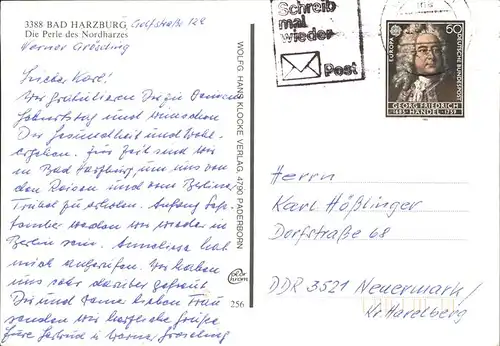 3388 BAD HARZBURG Golfstraße 12a
Die Perle des Nordharzes
Werner Grösling
Lieber Karl!
Wir gratulieren Dir zu Deinem
Geburtstag und wünschen
Dir Gesundheit und Wohl-
ergehen. Zur Zeit sind wir
in Bad Harzburg, um uns von
den Reisen und vom Berliner
Trubel zu erholen. Anfang Sep-
tember werden wir wieder in
Berlin sein. Anneliese hat
mich angerufen. Wir haben
uns sehr darüber gefreut.
Dir und Deiner lieben Frau
senden wir herzliche Grüße
Eure Gertrud u. Werner
WOLFG. HANS KLOCKE VERLAG, 4790 PADERBORN
256
Schreib
mal
wieder
Post
EUROPA
60
DEUTSCHE BUNDESPOST
GEORG FRIEDRICH
1685 HÄNDEL 1759
Herrn
Karl Hößlinger
Dorfstraße 68
DDR 3521 Neuermark/
Kr. Havelberg